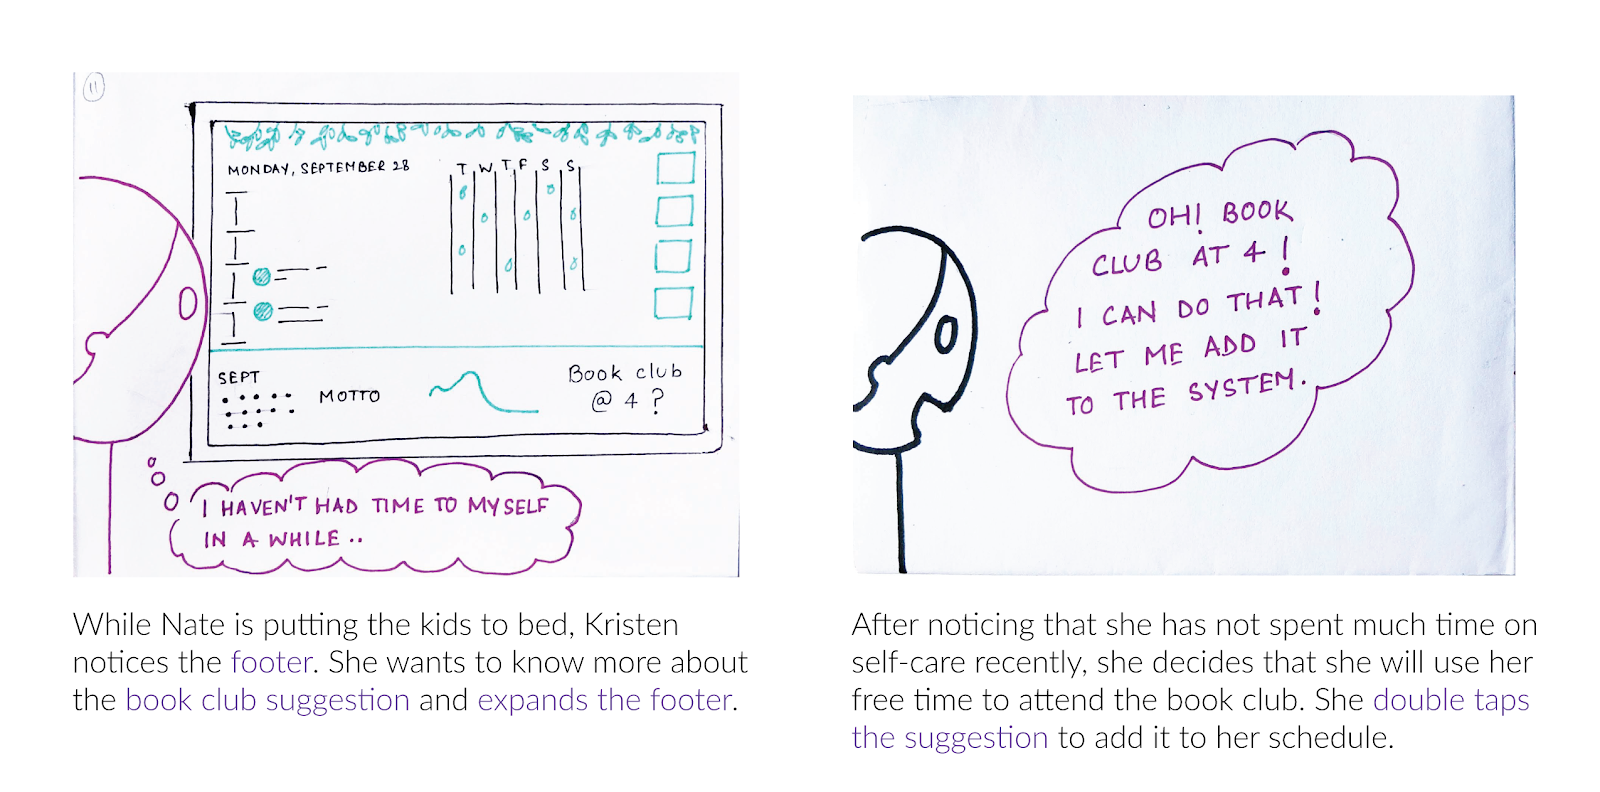 11
MONDAY, SEPTEMBER 28
T W T F S S
SEPT
MOTTO
Book club
@ 4 ?
I HAVEN'T HAD TIME TO MYSELF
IN A WHILE..
While Nate is putting the kids to bed, Kristen
notices the footer. She wants to know more about
the book club suggestion and expands the footer.
OH! BOOK
CLUB AT 4!
I CAN DO THAT!
LET ME ADD IT
TO THE SYSTEM.
After noticing that she has not spent much time on
self-care recently, she decides that she will use her
free time to attend the book club. She double taps
the suggestion to add it to her schedule.